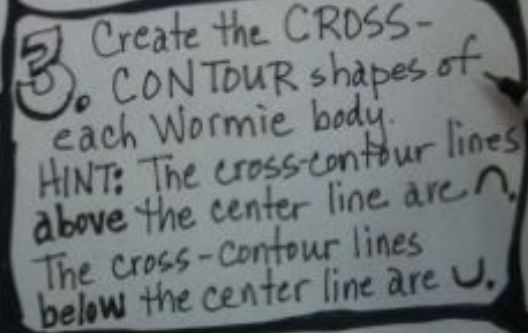 3. Create the CROSS-
CONTOUR shapes of
each Wormie body.
HINT: The cross-contour lines
above the center line are ∩.
The cross-contour lines
below the center line are ∪.